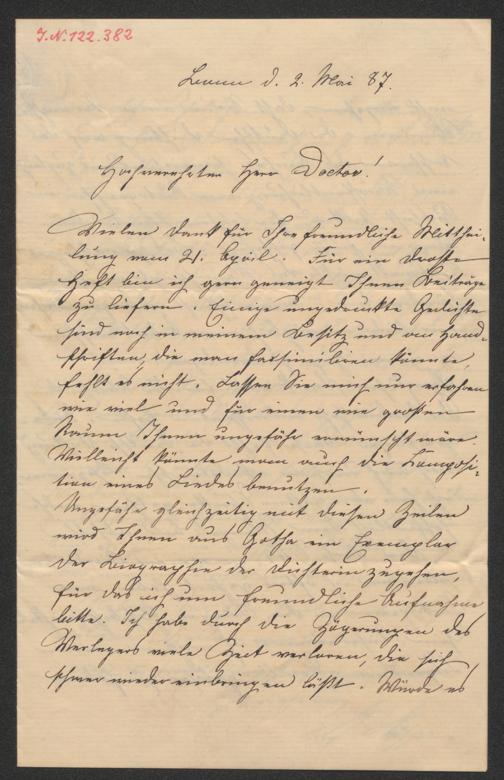 J.N. 122.382
Bonn d. 2. Mai 87.
Hochverehrter Herr Doctor!
Vielen Dank für Ihre freundliche Mitthei-
lung vom 21. April. Für ein Droste
Heft bin ich gern geneigt Ihnen Beiträge
zu liefern. Einige ungedruckte Gedichte
sind noch in meinem Besitz und an Hand-
schriften, die man facsimiliren könnte,
fehlt es nicht. Lassen Sie mich nur erfahren
wie viel und für einen wie großen
Raum Ihnen ungefähr erwünscht wäre.
Vielleicht könnte man auch die Composi-
tion eines Liedes benutzen.
Ungefähr gleichzeitig mit diesen Zeilen
wird Ihnen aus Gotha ein Exemplar
der Biographie der Dichterin zugehen,
für das ich um freundliche Aufnahme
bitte. Ich habe durch die Zögerungen des
Verlegers viele Zeit verloren, die sich
schwer wieder einbringen läßt. Würde es